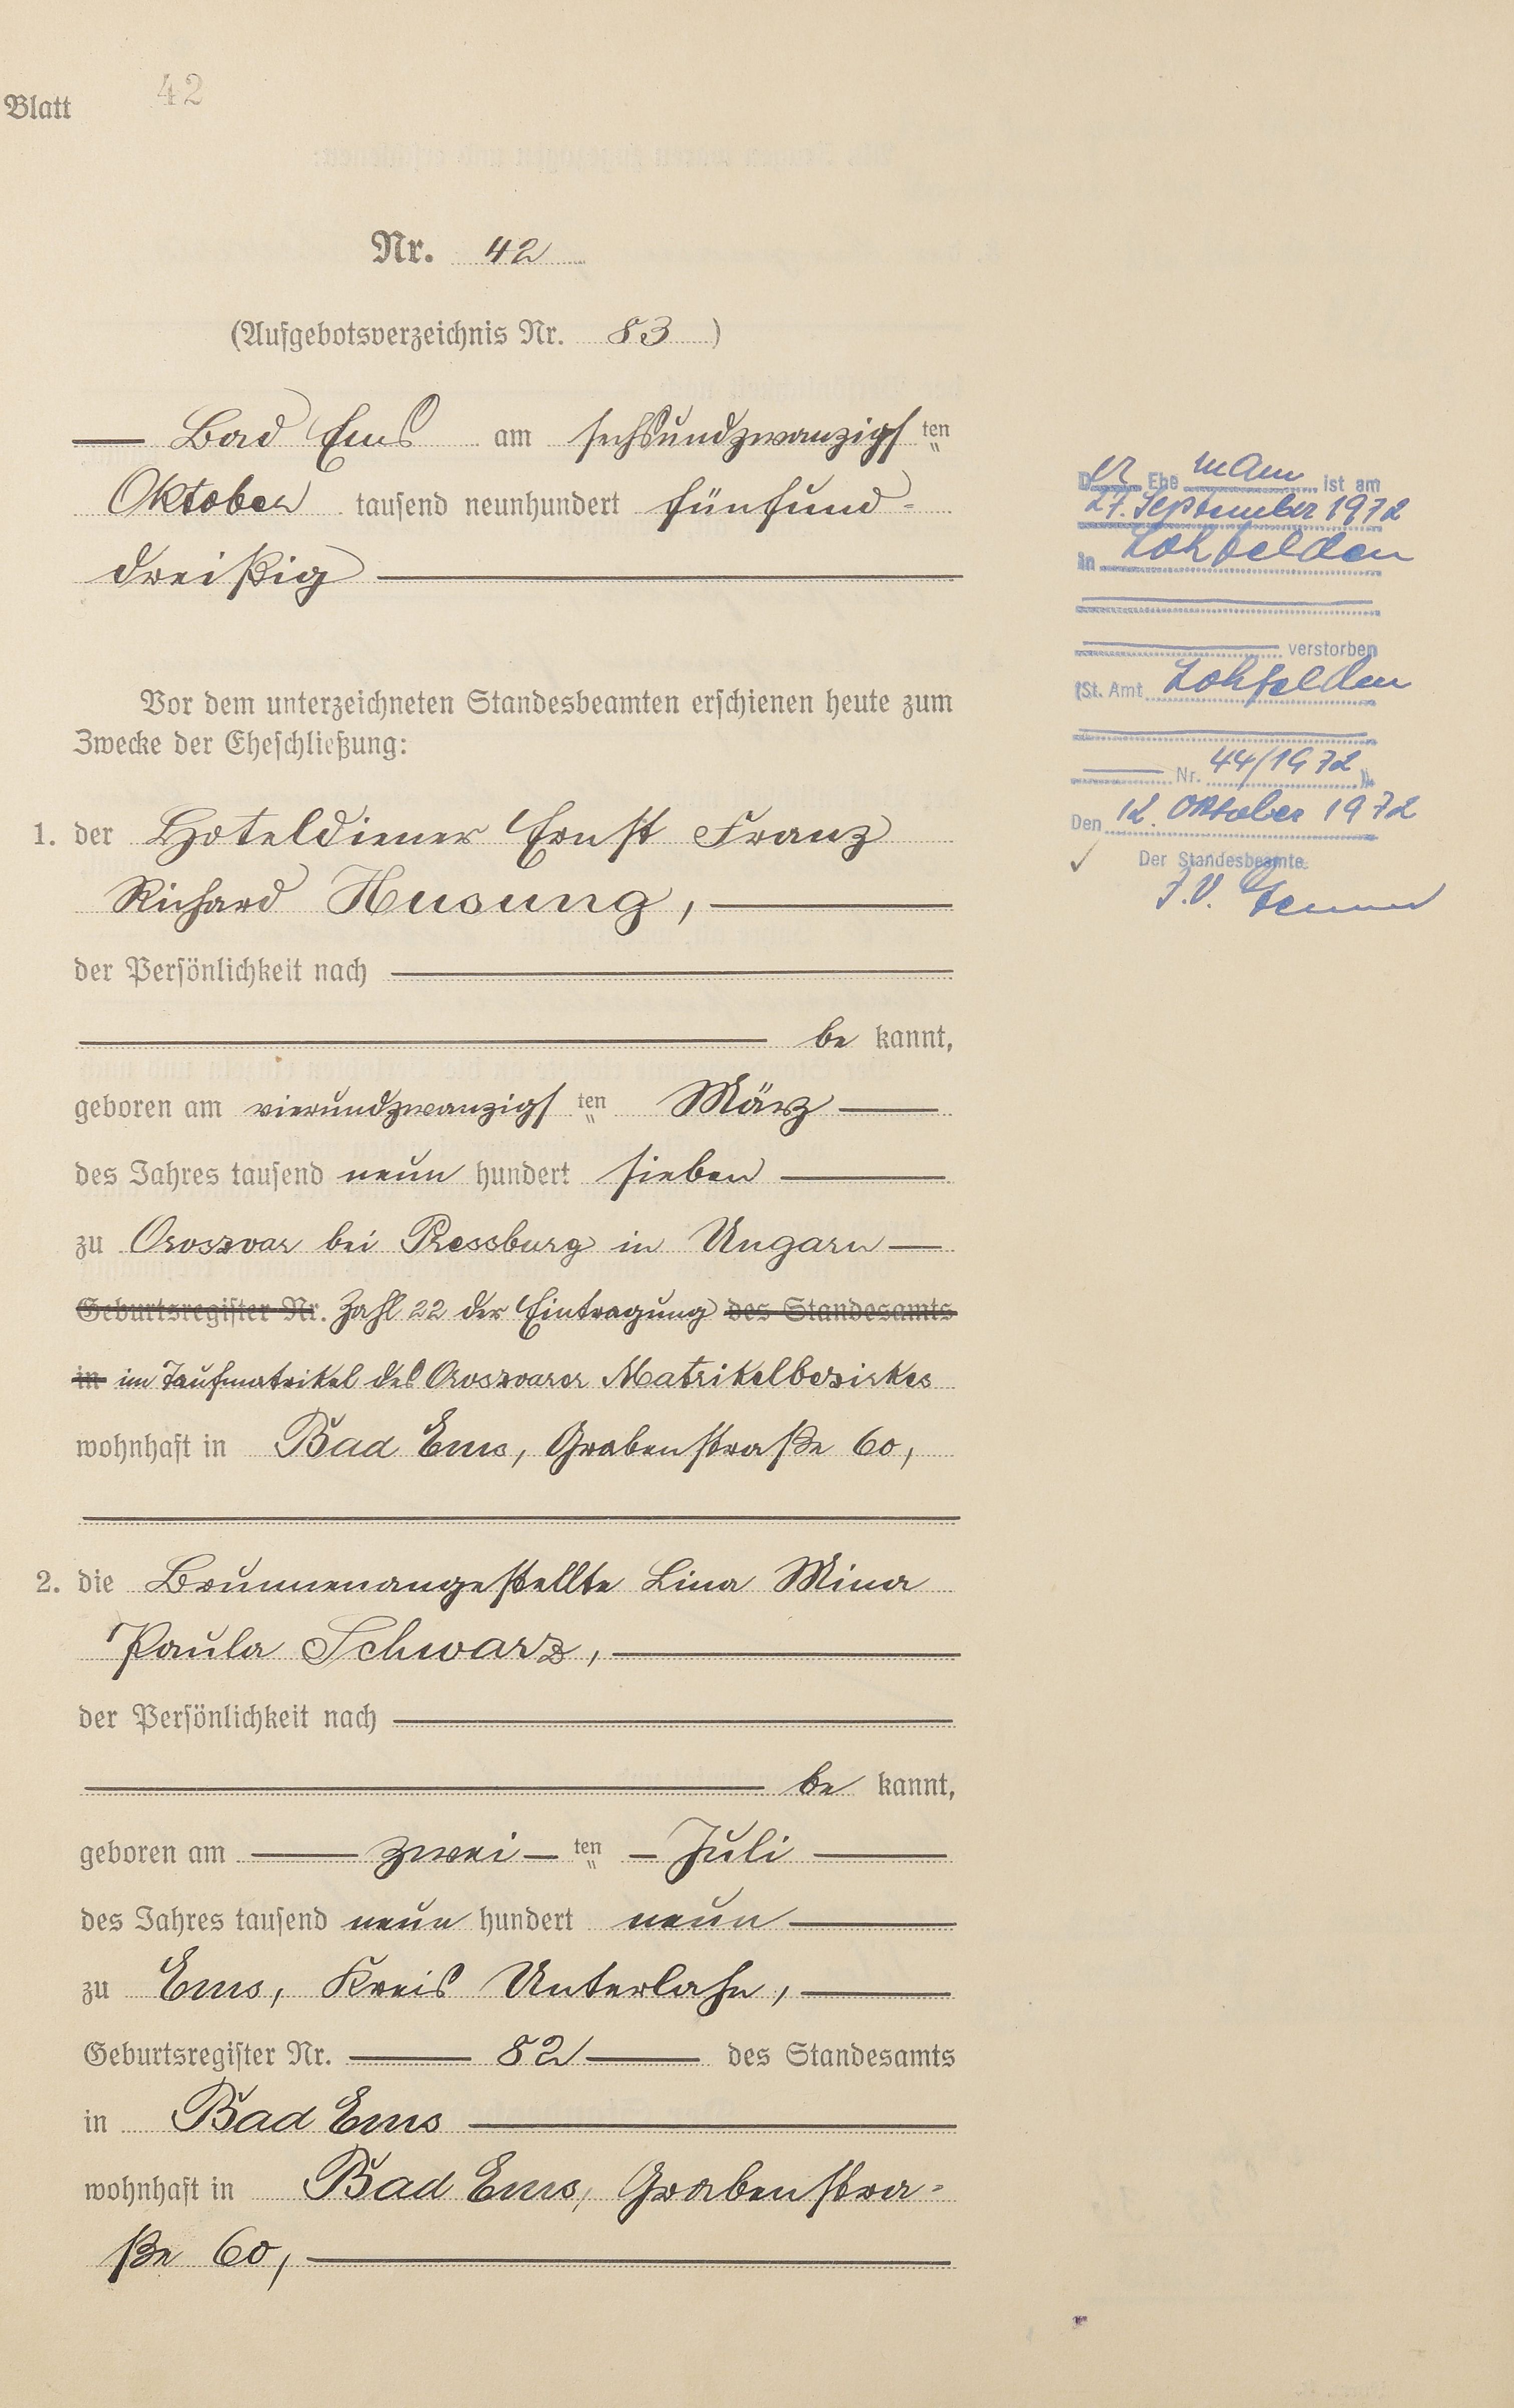 Blatt 42
Nr. 42
(Aufgebotsverzeichnis Nr. 83)
— Bad Ems am sechsundzwanzigsten
Oktober tausend neunhundert fünfund-
dreißig —
Vor dem unterzeichneten Standesbeamten erschienen heute zum
Zwecke der Eheschließung:
1. der Hoteldiener Ernst Franz
Richard Husung, —
der Persönlichkeit nach —
— be kannt,
geboren am vierundzwanzigsten März —
des Jahres tausend neun hundert sieben —
zu Oroszvar bei Pressburg in Ungarn —
Geburtsregister Nr. Zahl 22 der Eintragung des Standesamts
in im Taufmatrikel des Oroszvarer Matrikelbezirkes
wohnhaft in Bad Ems, Grabenstraße 60,
2. die Brunnenangestellte Lina Mina
Paula Schwarz, —
der Persönlichkeit nach —
— be kannt,
geboren am — zwei — ten — Juli —
des Jahres tausend neun hundert neun —
zu Ems, Kreis Unterlahn, —
Geburtsregister Nr. — 82 — des Standesamts
in Bad Ems —
wohnhaft in Bad Ems, Grabenstra-
ße 60, —
Der Ehemann ist am
27. September 1972
in Lohfelden
— verstorben
(St. Amt Lohfelden
— Nr. 44/1972)
Den 12. Oktober 1972
Der Standesbeamte
J.V.